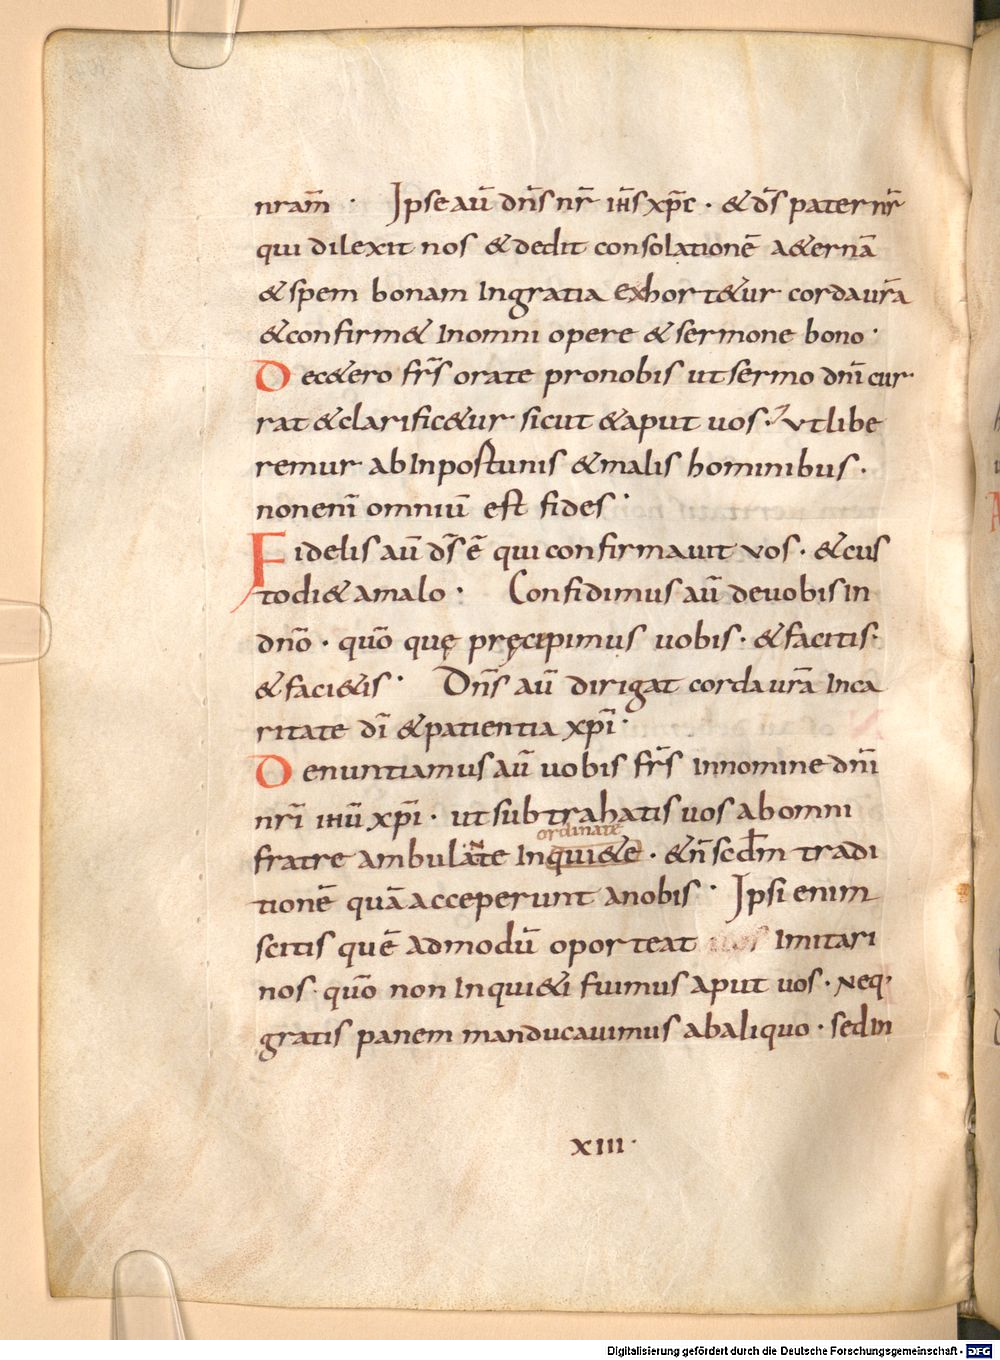 nram̄ · Ipse aū dn̄s nr̄ ih̄s xp̄c · & d̄s pater nr̄
qui dilexit nos & dedit consolationē a&ernā
& spem bonam In gratia exhort&ur corda ur̄a
& confirm& In omni opere & sermone bono ·
Dec&ero fr̄s orate pro nobis ut sermo dn̄i cur
rat & clarific&ur sicut & aput uos · ut libe
remur ab Inpostunis & malis hominibus ·
non enī omniū est fides ·
Fidelis aū d̄s ē qui confirmauit vos · & cus
todi& a malo · Confidimus aū de uobis In
dnō · quō quę pręcipimus uobis · & facitis ·
& faci&is · Dn̄s aū dirigat corda ur̄a In ca
ritate dī & patientia xp̄i ·
Denuntiamus aū uobis fr̄s in nomine dn̄i
nr̄i ih̄u xp̄i · ut subtrahatis uos ab omni
ordinate
fratre ambulante Inqui&e · & n̄ scdm̄ tradi
tionē quā acceperunt a nobis · Ipsi enim
scitis quē admodū oporteat uos Imitari
nos · quō non Inqui&i fuimus aput uos · Neq·
gratis panem manducauimus ab aliquo · sed In
XIII ·
Digitalisierung gefördert durch die Deutsche Forschungsgemeinschaft - DFG